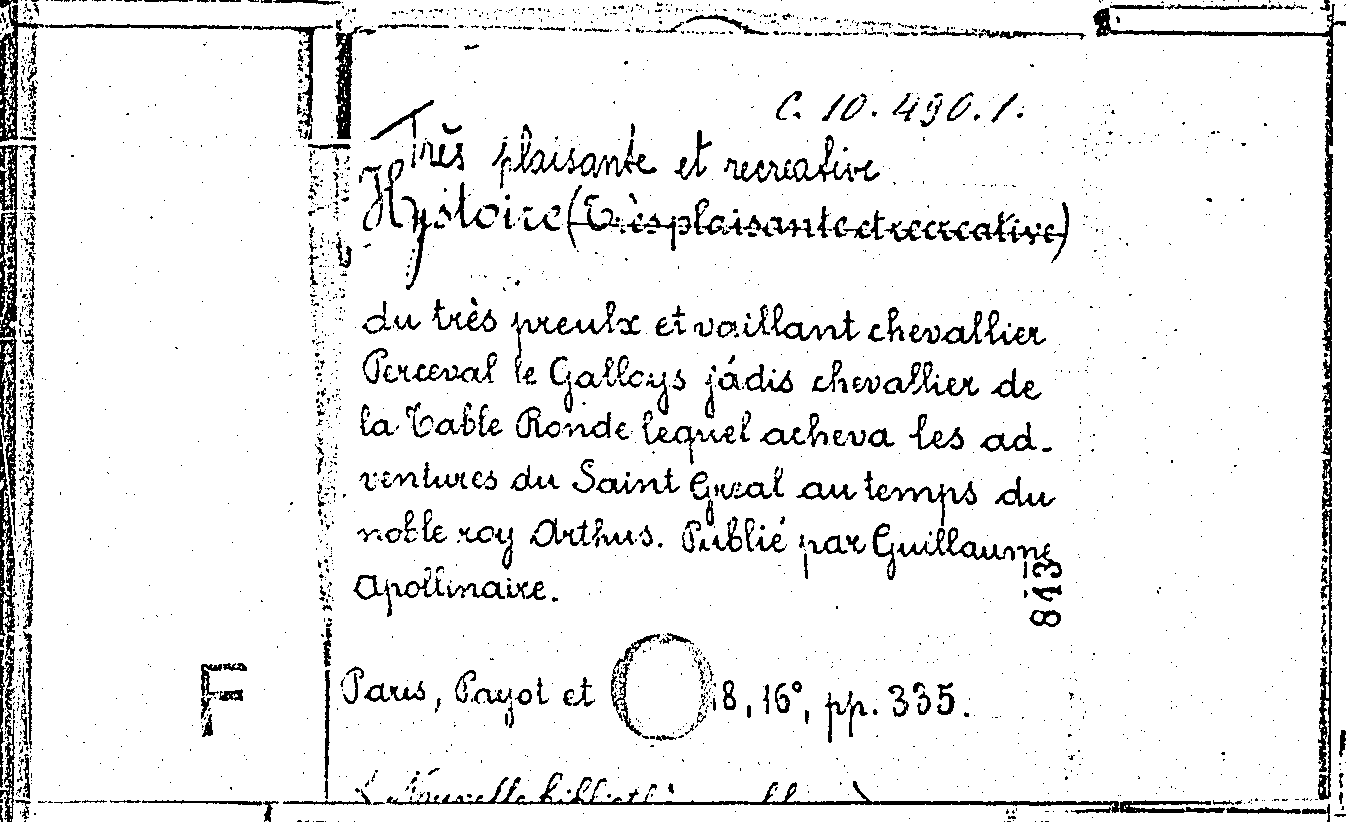 C. 10. 490. 1.
Très plaisante et recreative
Hystoire (Très plaisante et recreative)
du très preulx et vaillant chevallier
Perceval le Galloys jádis chevallier de
la Table Ronde lequel acheva les ad-
ventures du Saint Greal au temps du
noble roy Arthus. Publié par Guillaume
Apollinaire.
843
F
Paris, Payot et 18, 16°, pp. 335.
Nouvelle